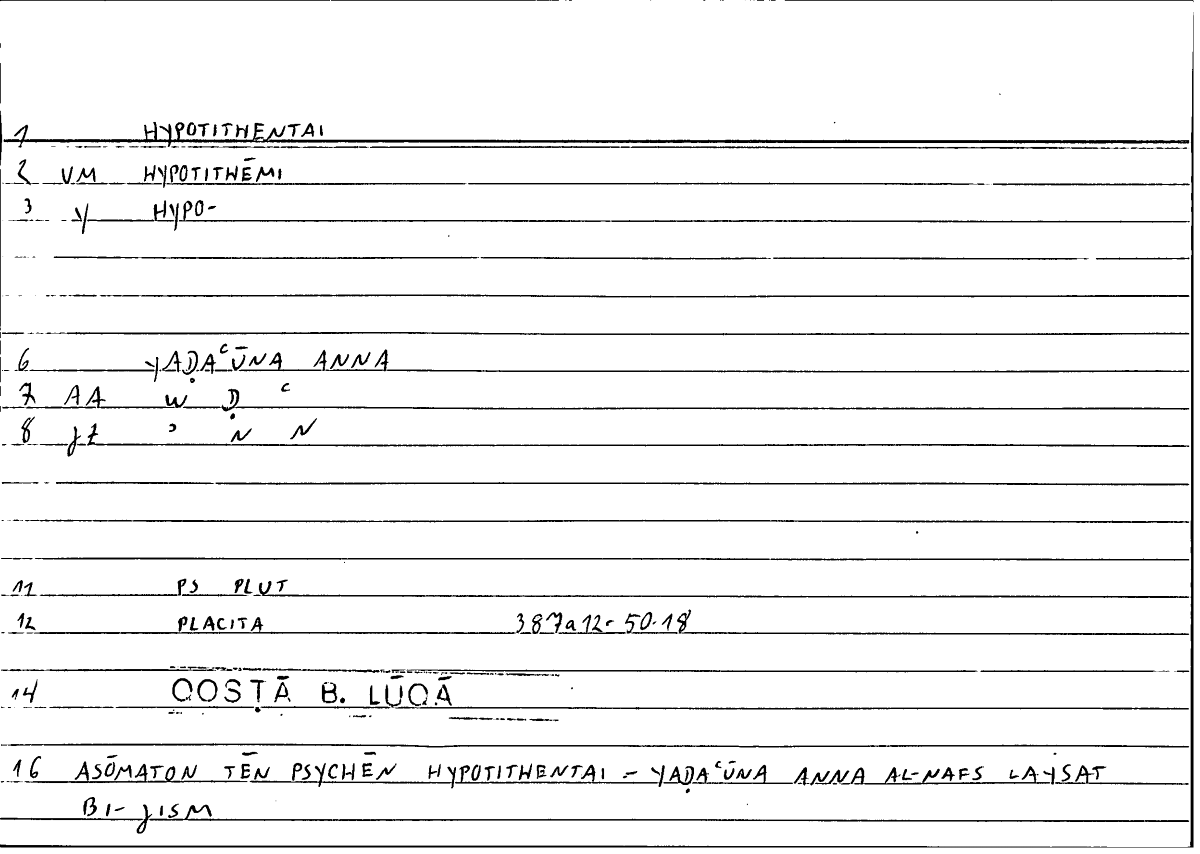 1 HYPOTITHENTAI
2 VM HYPOTITHĒMI
3 Y HYPO-
6 YAḌAʿŪNA ANNA
7 AA W Ḍ ʿ
8 JZ ʾ N N
11 PS PLUT
12 PLACITA 387a12-50.18
14 QOSṬĀ B. LŪQĀ
16 ASŌMATON TĒN PSYCHĒN HYPOTITHENTAI - YAḌAʿŪNA ANNA AL-NAFS LAYSAT
BI-JISM